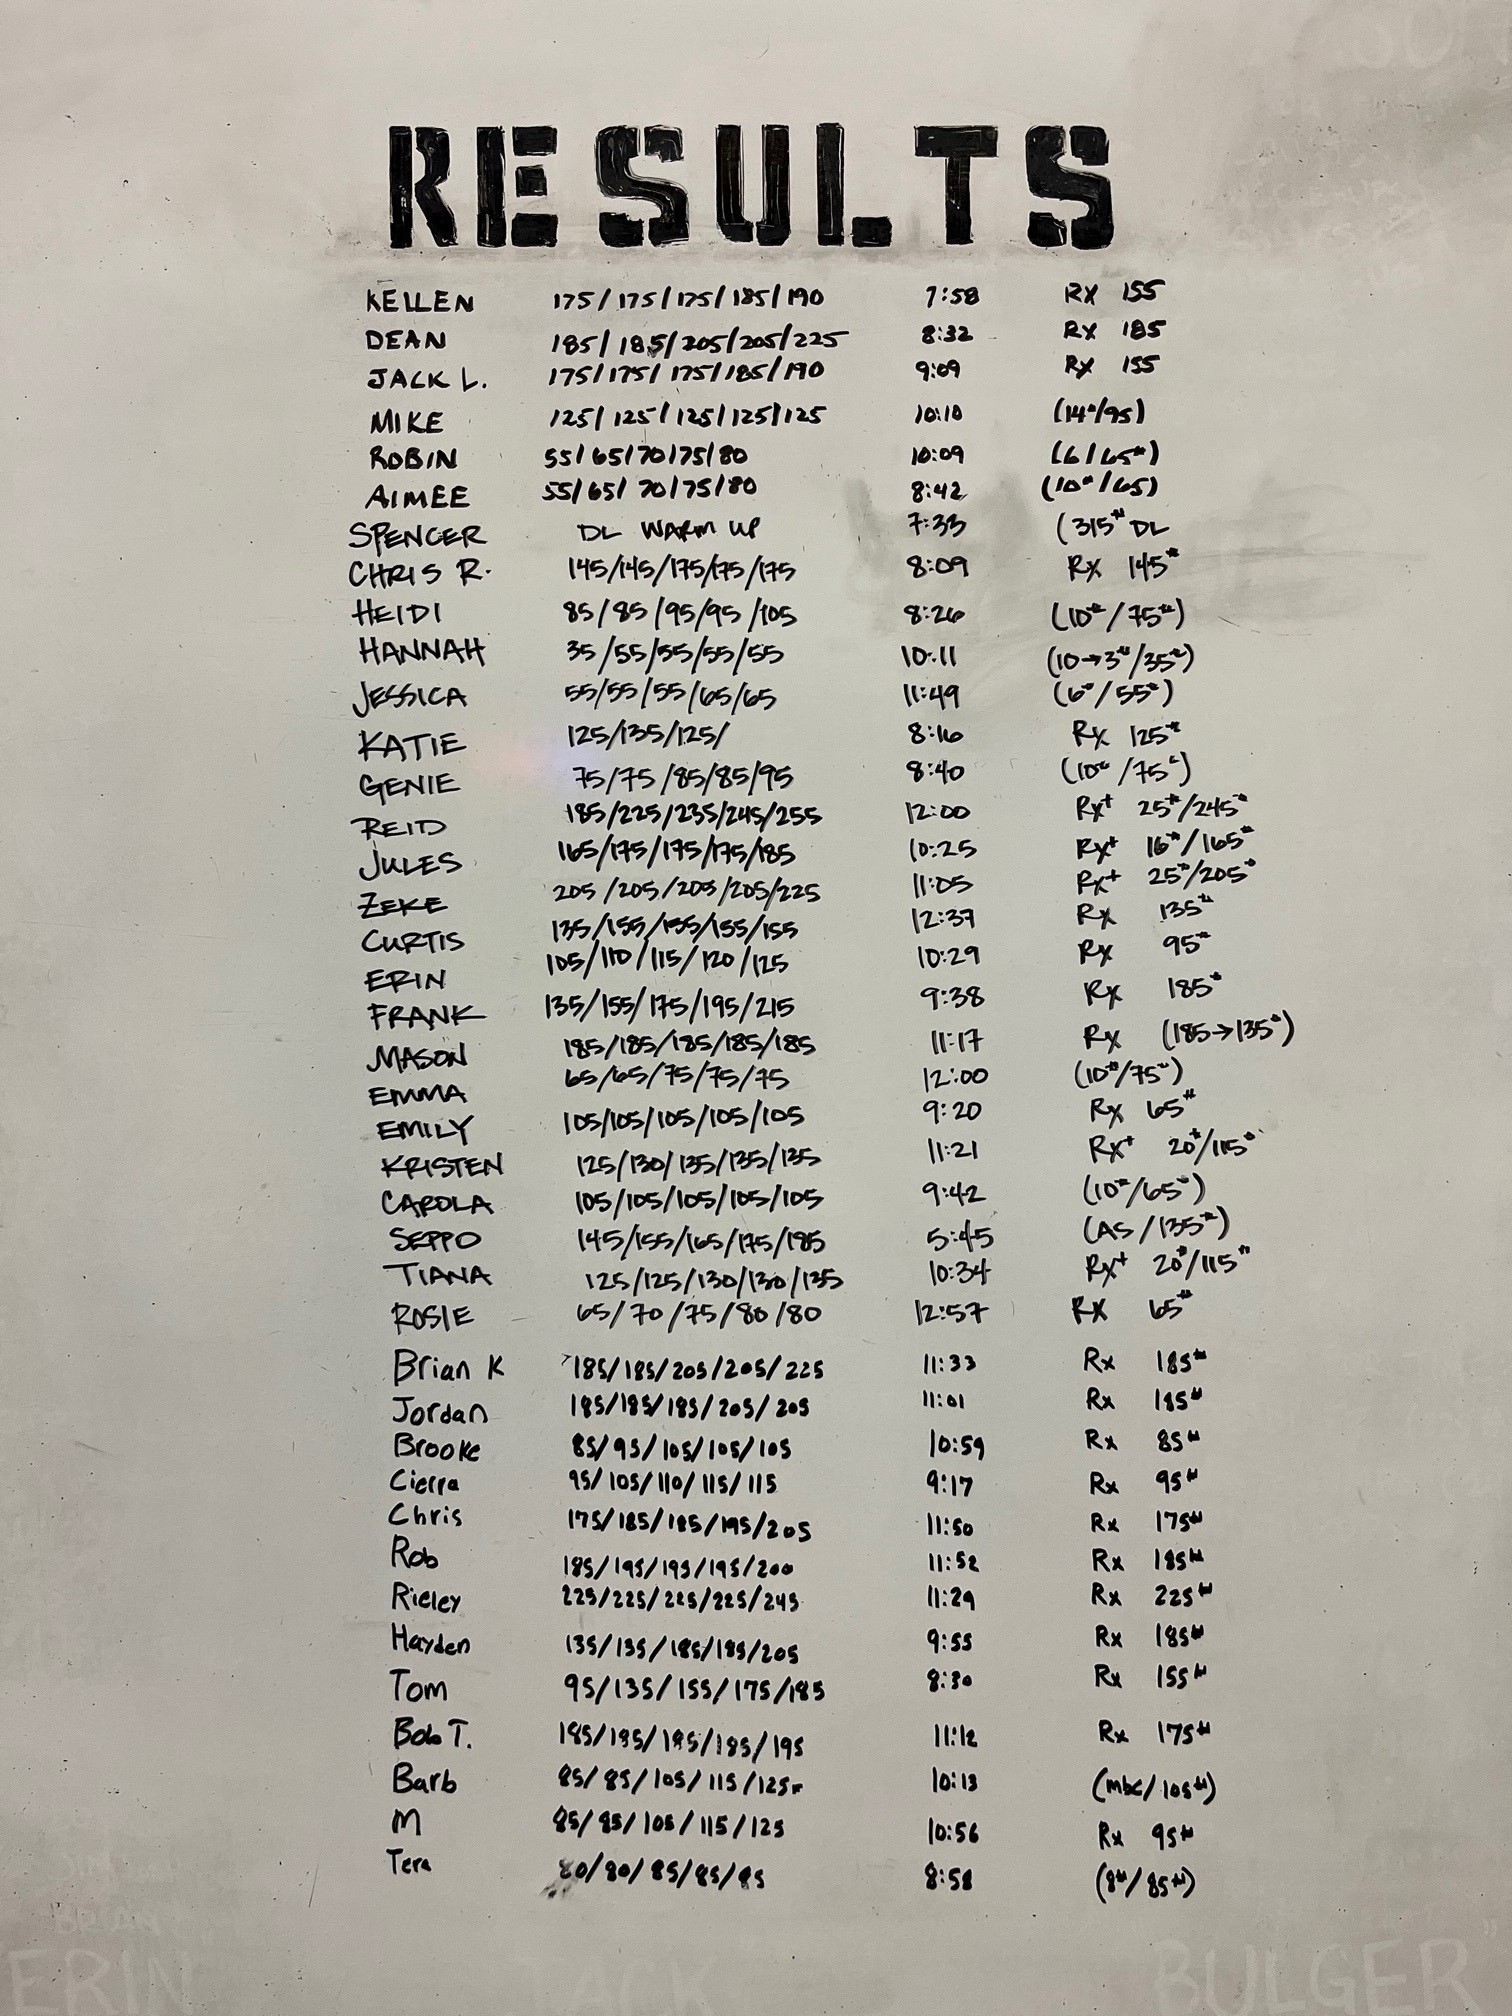 RESULTS
KELLEN 175/175/175/185/190 7:58 Rx 155
DEAN 185/185/205/205/225 8:32 Rx 185
JACK L. 175/175/175/185/190 9:09 Rx 155
MIKE 125/125/125/125/125 10:10 (14#/95)
ROBIN 55/65/70/75/80 10:09 (6/65#)
AIMEE 55/65/70/75/80 8:42 (10#/65)
SPENCER DL WARM UP 7:33 (315# DL
CHRIS R. 145/145/175/175/175 8:09 Rx 145#
HEIDI 85/85/95/95/105 8:26 (10#/75#)
HANNAH 35/55/55/55/55 10:11 (10→3#/35#)
JESSICA 55/55/55/65/65 11:49 (6#/55#)
KATIE 125/135/125/ 8:16 Rx 125#
GENIE 75/75/85/85/95 8:40 (10#/75#)
REID 185/225/235/245/255 12:00 Rx+ 25#/245#
JULES 165/175/175/175/185 10:25 Rx+ 16#/165#
ZEKE 205/205/205/205/225 11:05 Rx+ 25#/205#
CURTIS 135/155/155/155/155 12:37 Rx 135#
ERIN 105/110/115/120/125 10:29 Rx 95#
FRANK 135/155/175/195/215 9:38 Rx 185#
MASON 185/185/185/185/185 11:17 Rx (185→135#)
EMMA 65/65/75/75/75 12:00 (10#/75#)
EMILY 105/105/105/105/105 9:20 Rx 65#
KRISTEN 125/130/135/135/135 11:21 Rx+ 20#/115#
CAROLA 105/105/105/105/105 9:42 (10#/65#)
SEPPO 145/155/165/175/185 5:45 (AS/135#)
TIANA 125/125/130/130/135 10:34 Rx+ 20#/115#
ROSIE 65/70/75/80/80 12:57 Rx 65#
Brian K 185/185/205/205/225 11:33 Rx 185#
Jordan 185/185/185/205/205 11:01 Rx 185#
Brooke 85/95/105/105/105 10:59 Rx 85#
Cierra 95/105/110/115/115 9:17 Rx 95#
Chris 175/185/185/195/205 11:50 Rx 175#
Rob 185/195/195/195/200 11:52 Rx 185#
Rieley 225/225/225/225/245 11:29 Rx 225#
Hayden 135/135/185/185/205 9:55 Rx 185#
Tom 95/135/155/175/185 8:30 Rx 155#
Bob T. 185/195/195/195/195 11:12 Rx 175#
Barb 85/85/105/115/125 10:13 (mbc/105#)
M 85/85/105/115/125 10:56 Rx 95#
Tera 80/80/85/85/85 8:58 (8#/85#)
ERIN JACK BULGER